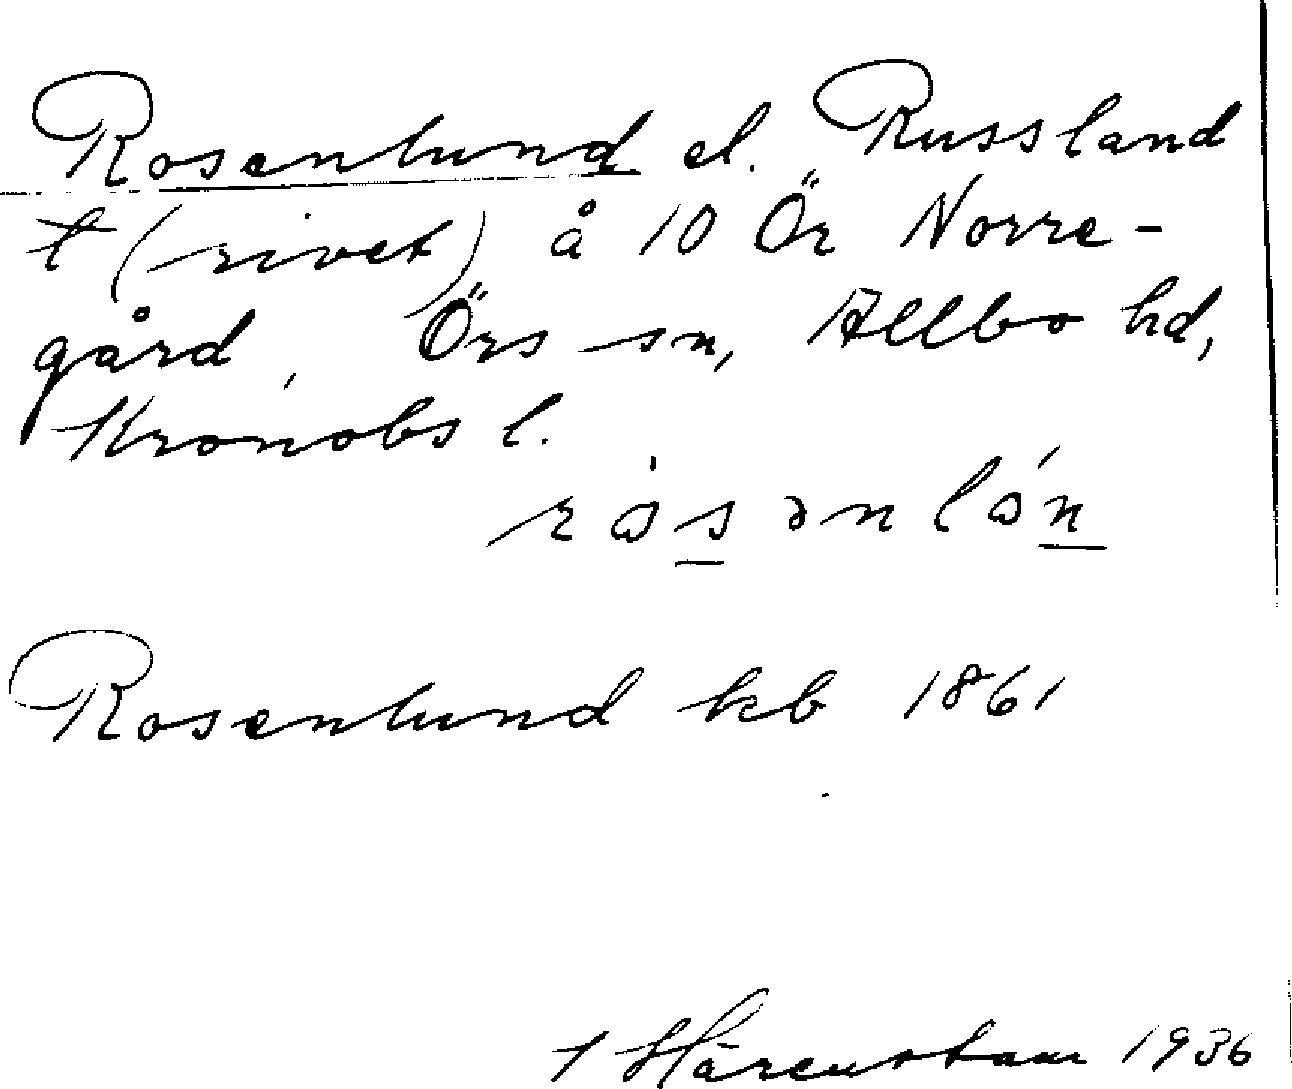 Rosenlund el. Russland
t (rivet) å 10 Ör Norre-
gård, Örs sn, Allbo hd,
Kronobs l.
Rosenlund kb 1861
1936